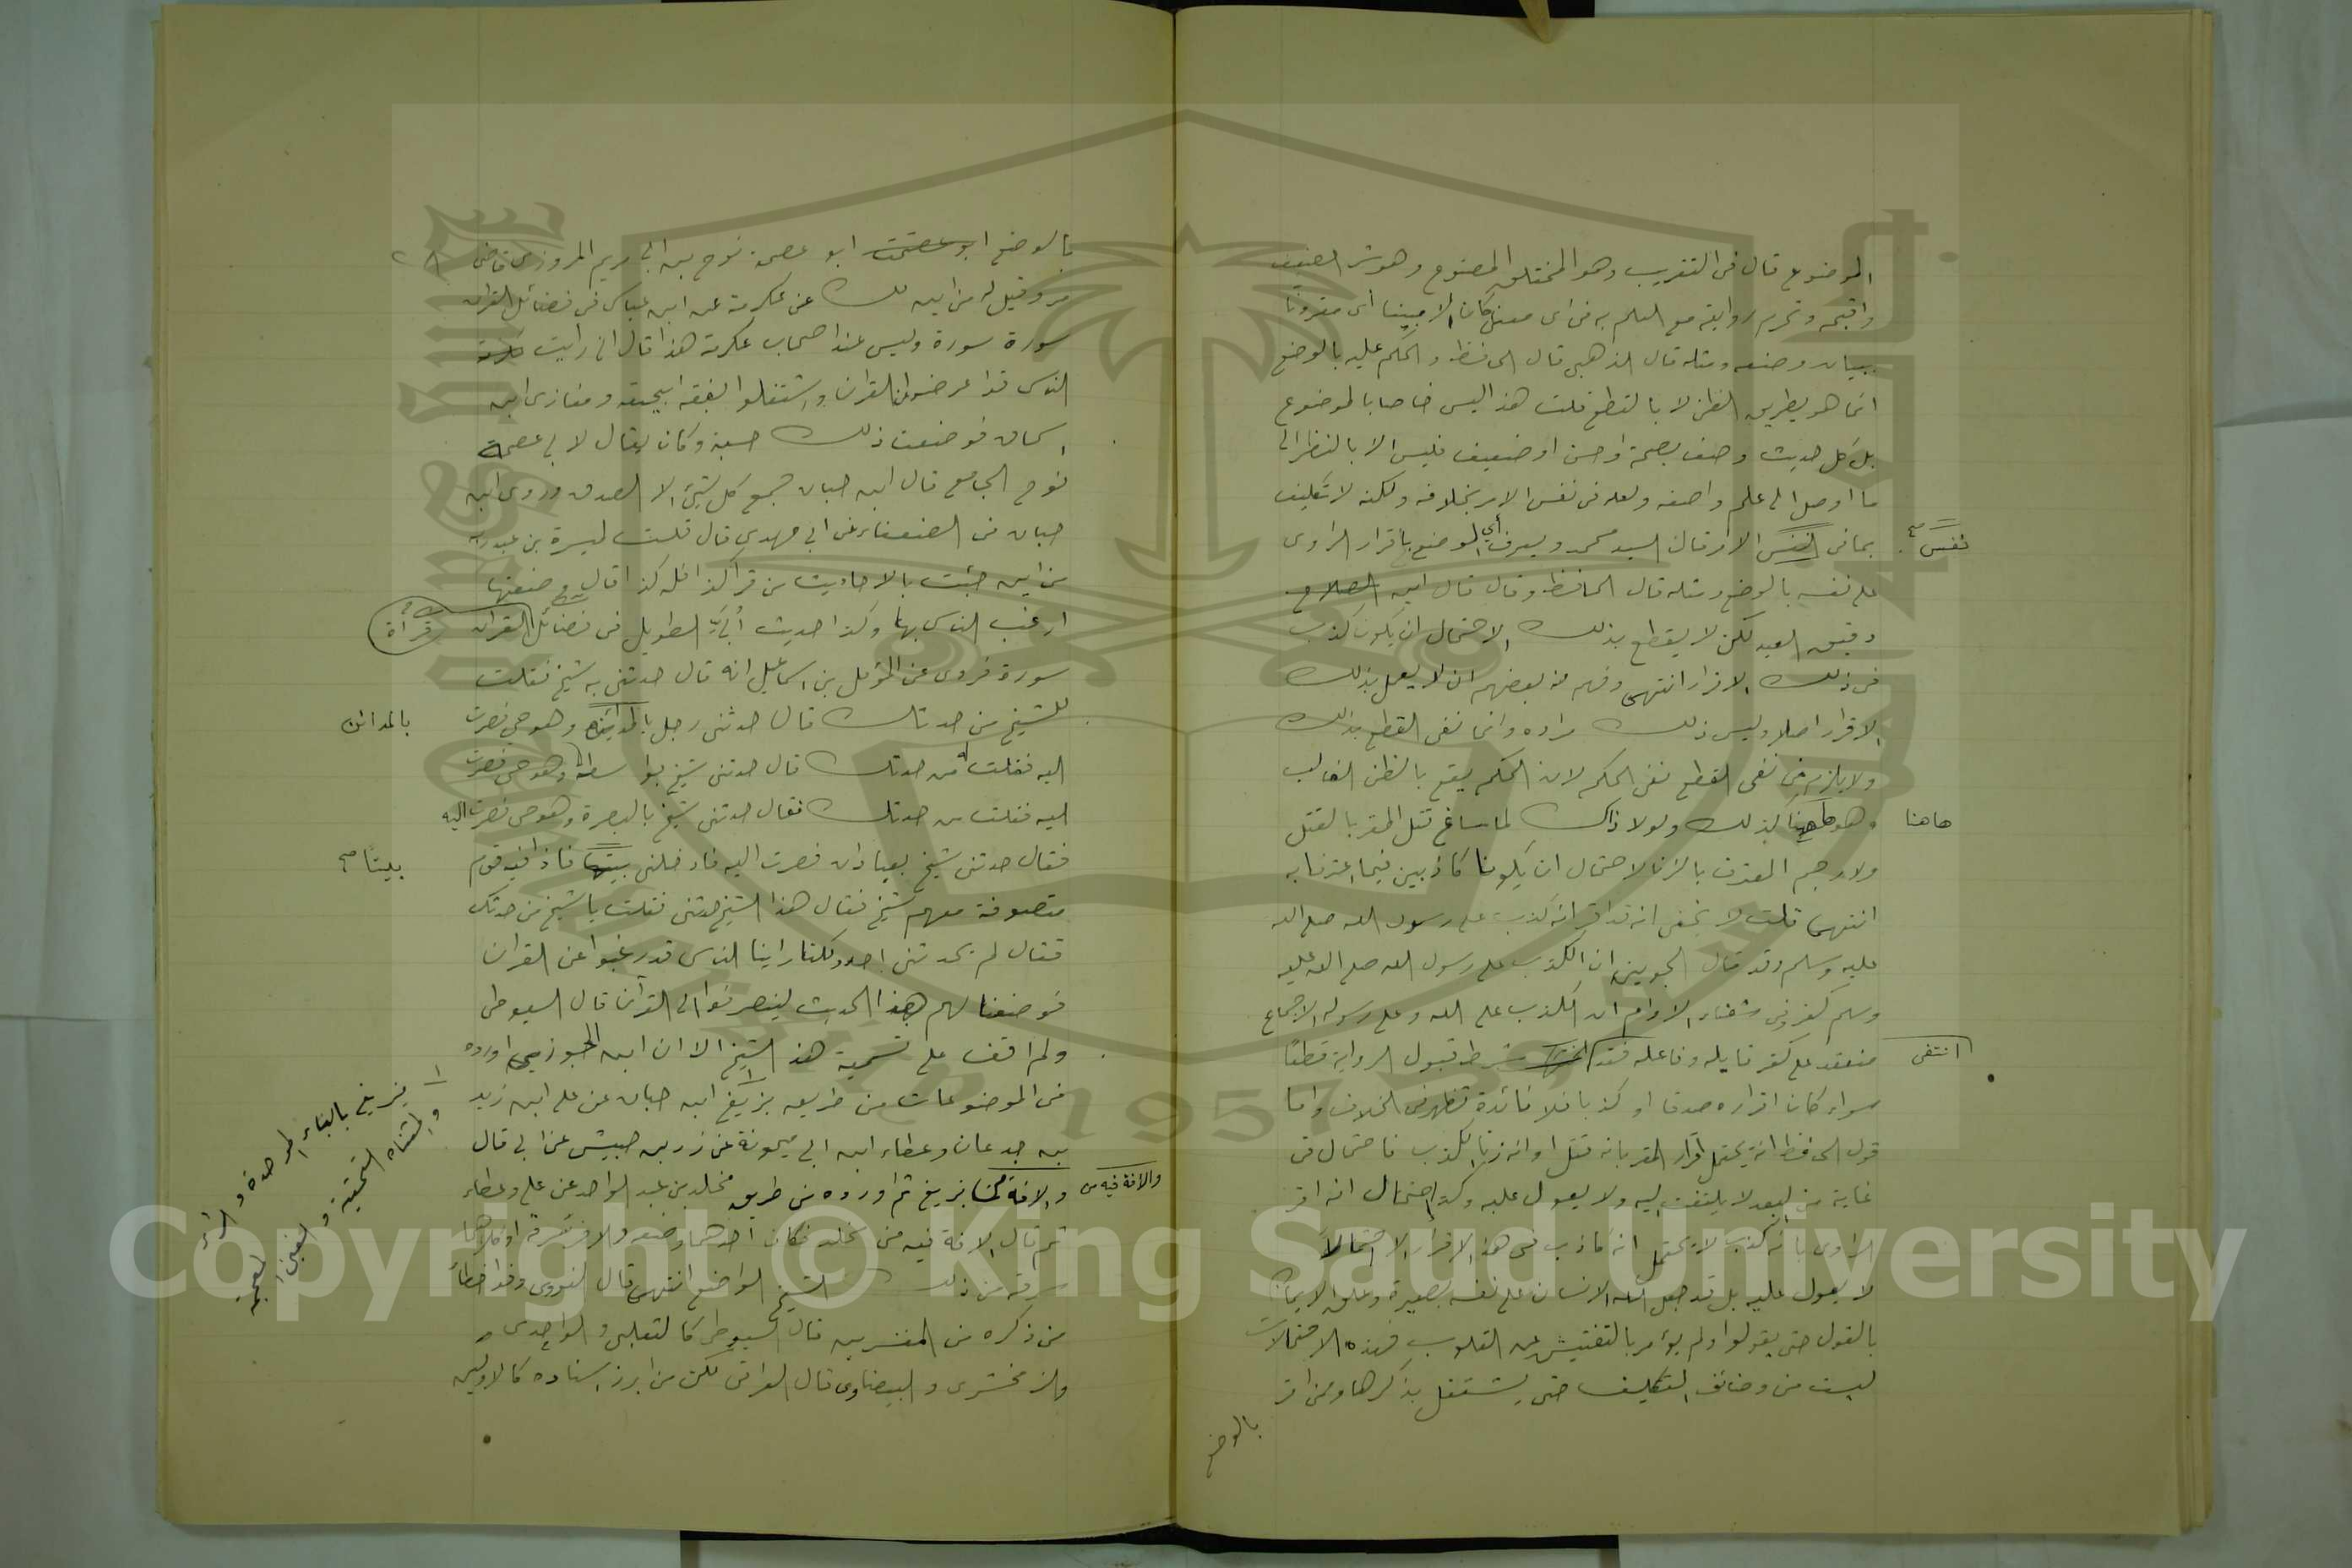 الموضوع قال في التقريب وهو المختلق المصنوع وهو شر الضعيف
واقبحه وتحرم روايته مع العلم به في اى معنى كان الا مبينا اى مقرونا
ببيان وضعه ومثله قال الذهبي قال الحافظ والحكم عليه بالوضع
انما هو بطريق الظن لا بالقطع قلت هذا ليس خاصا بالموضوع
بل كل حديث وصف بصحة او حسن او ضعيف فليس الا بالنظر الى
ما اوصل الى علم واصفه ولعله في نفس الامر بخلافه ولكنه لا تكليف
بما في نفس الامر قال السيد محمد ويعرف أي الوضع باقرار الراوى
نفس صح
على نفسه بالوضع ومثله قال الحافظ وقال قال ابن الصلاح
دقيق العيد لكن لا يقطع بذلك الاحتمال ان يكون كذب
في ذلك الاقرار انتهى وفهم منه بعضهم ان لا يعمل بذلك
الاقرار اصلا وليس ذلك مراده وانما نفى القطع بذلك
ولا يلزم من نفى القطع نفى الحكم لان الحكم يقع بالظن الغالب
وهو كذلك ولولا ذاك لما ساغ قتل المقر بالقتل
هاهنا
ولا رجم المعترف بالزنا لاحتمال ان يكونا كاذبين فيما اعترفا به
انتهى قلت لا يخفى انه قد اقر انه كذب على رسول الله صلى الله
عليه وسلم وقد قال الجويني ان الكذب على رسول الله صلى الله عليه
وسلم كفر وفي شفاء الاوام ان الكذب على الله وعلى رسوله الاجماع
منعقد على كفر قايله وفاعله فقد شرط قبول الرواية قطعا
انتفى
سواء كان اقراره صدقا او كذبا فلا فائدة تظهر في الخلاف واما
قول الحافظ انه يحتمل اقرار المقر بانه قتل او انه زنا الكذب فاحتمال في
غاية من البعد لا يلتفت اليه ولا يعول عليه وكذا احتمال انه اقر
الراوى بانه كذب لا يحتمل انه كاذب في هذا الاقرار الا احتمالا
لا يعول عليه بل قد جعل الله الانسان على نفسه بصيرة وعلق الايمان
بالقول حتى يقولوا ولم يؤمر بالتفتيش عن القلوب فهذه الاحتمالات
ليست من وضائف التكليف حتى يشتغل بذكرها ومن اقر
بالوضع
بالوضع ابو عصمة ابو عصمة نوح بن ابي مريم المروزى قاضى
مرو قيل له من اين لك عن عكرمة عن ابن عباس في فضائل القران
سورة سورة وليس عند اصحاب عكرمة هذا قال اني رايت
الناس قد اعرضوا عن القران واشتغلوا بفقه ابيحنيفه ومغازى ابن
اسحاق فوضعت ذلك حسبة وكان يقال لابي عصمة
نوح الجامع قال ابن حبان جمع كل شيئ الا الصدق وروى ابن
حبان في الضعفاء عن ابي مهدى قال قلت لميسرة بن عبد ربه
من اين جئت بالاحاديث من قرأ كذا فله كذا قال وضعتها
ارغب الناس بها وكذا حديث أُبَيّ الطويل في فضائل القران
قرأة
سورة فروى عن المؤمل بن اسماعيل انه قال حدثني به شيخ فقلت
للشيخ من حدثك قال حدثني رجل بالمداين وهو حي فصرت
بالمدائن
اليه فقلت من حدثك قال حدثني شيخ بواسط وهو حي فصرت
اليه فقلت من حدثك فقال حدثني شيخ بالبصرة وهو حي فصرت اليه
فقال حدثني شيخ بعبادان فصرت اليه فادخلني بيتا فاذا فيه قوم
بيتًا صح
متصوفة معهم شيخ فقال هذا الشيخ حدثني فقلت يا شيخ من حدثك
فقال لم يحدثني احد ولكننا راينا الناس قد رغبوا عن القران
فوضعنا لهم هذا الحديث لينصرفوا الى القرآن قال السيوطى
ولم اقف على تسمية هذا الشيخ الا ان ابن الجوزى اورده
في الموضوعات من طريق بزيغ ابن حبان عن على ابن زيد
بن جدعان وعطاء ابن ابي ميمونة عن زر بن حبيش عن ابي قال
والافة بزيغ ثم اورده من طريق مخلد بن عبد الواحد عن على وعطاء
والافة فيه من
ثم قال الافة فيه من مخلد فكان احدهما وضعه والاخر سرقه او كلاهما
سرقه من ذلك الشيخ الواضع انتهى قال النووى وقد اخطأ
من ذكره من المفسرين قال السيوطى كالثعلبى والواحدى
والزمخشرى والبيضاوى قال العراقى لكن من ابرز اسناده كالاولين
بزيغ بالباء الموحدة والزاى
والمثناه التحتية والغين المعجمه